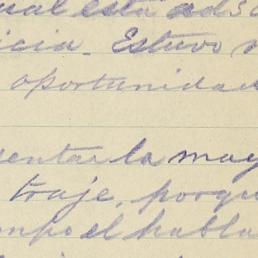 ual está ads
icia. Estuvo
oportunidad
entar la may
traje, porqu
mpo el habla